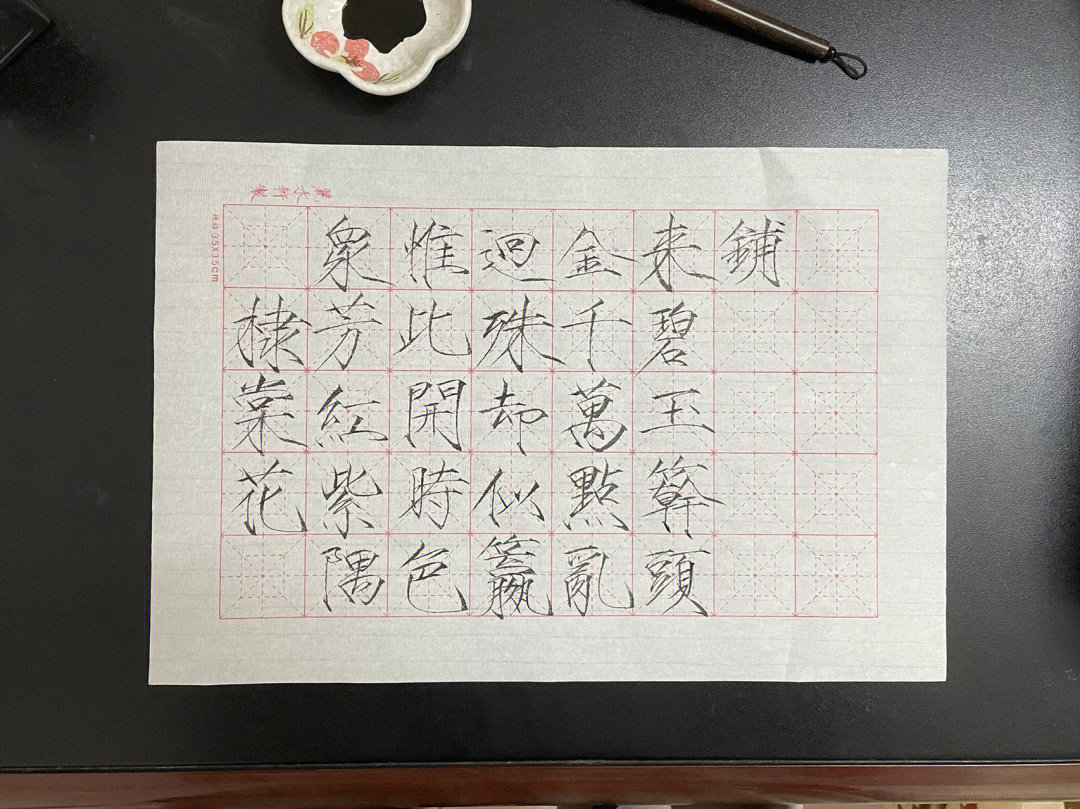 棣棠花
衆芳紅紫隅
惟此開時色
逈殊却似籯
金千萬點亂
来碧玉簳頭
鋪
規格35X35cm